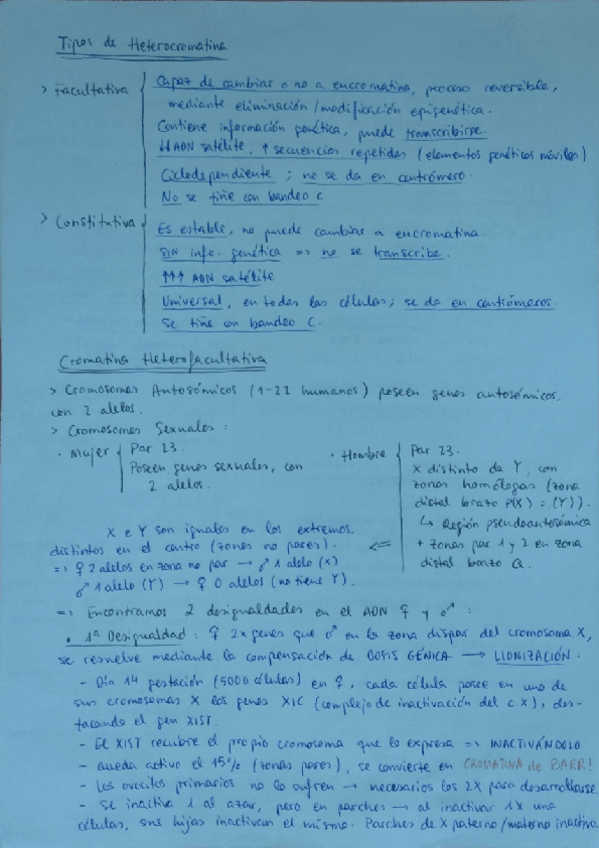 Tipos de Heterocromatina
> Facultativa
Capaz de cambiar o no a eucromatina, proceso reversible,
mediante eliminación/modificación epigenética.
Contiene información genética, puede transcribirse.
↓↓ ADN satélite, ↑ secuencias repetidas (elementos genéticos móviles)
Ciclodependiente ; no se da en centrómero.
No se tiñe con bandeo C
> Constitutiva
Es estable, no puede cambiar a eucromatina.
SIN info. genética => no se transcribe.
↑↑↑ ADN satélite
Universal, en todas las células; se da en centrómeros.
Se tiñe con bandeo C.
Cromatina Heterofacultativa
> Cromosomas Autosómicos (1-22 humanos) poseen genes autosómicos,
con 2 alelos.
> Cromosomas Sexuales :
· Mujer
Par 23.
Poseen genes sexuales, con
2 alelos.
· Hombre
Par 23.
X distinto de Y, con
zonas homólogas (zona
distal brazo P(X) = (Y)).
↳ Región pseudoautosómica
+ zonas par 1 y 2 en zona
distal brazo Q.
<==
X e Y son iguales en los extremos,
distintos en el centro (zonas no pares).
=> ♀ 2 alelos en zona no par → ♂ 1 alelo (X)
♂ 1 alelo (Y) → ♀ 0 alelos (no tiene Y).
=> Encontramos 2 desigualdades en el ADN ♀ y ♂ :
• 1ª Desigualdad : ♀ 2x genes que ♂ en la zona dispar del cromosoma X,
se resuelve mediante la compensación de DOSIS GÉNICA → LIONIZACIÓN :
- Día 14 gestación (5000 células) en ♀, cada célula posee en uno de
sus cromosomas X los genes XIC (complejo de inactivación del c X), des-
tacando el gen XIST.
- El XIST recubre el propio cromosoma que lo expresa => INACTIVÁNDOLO
- Queda activo el 15% (zonas pares), se convierte en CROMATINA de BARR!
- Los ovocitos primarios no lo sufren → necesarios los 2X para desarrollarse.
- Se inactiva 1 al azar, pero en parches → al inactivar 1X una
células, sus hijas inactivan el mismo. Parches de X paterno/materno inactivo.